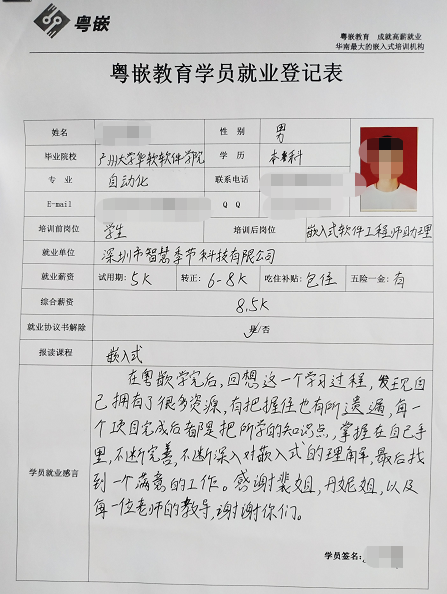 粤嵌
粤嵌教育 成就高薪就业
华南最大的嵌入式培训机构
粤嵌教育学员就业登记表
姓名 性 别 男
毕业院校 广州大学华软软件学院 学 历 本科
专 业 自动化 联系电话
E-mail Q Q
培训前岗位 学生 培训后岗位 嵌入式软件工程师助理
就业单位 深圳市智慧季节科技有限公司
就业薪资 试用期：5K 转正：6-8K 吃住补贴：包住 五险一金：有
综合薪资 8.5K
就业协议书解除 是/否
报读课程 嵌入式
学员就业感言
在粤嵌学完后，回想这一个学习过程，发现自
己拥有了很多资源，有把握住也有所遗漏，每一
个项目完成后都是把所学的知识点，掌握在自己手
里，不断完善，不断深入对嵌入式的理解，最后找
到一个满意的工作。感谢裴姐，丹妮姐，以及
每一位老师的教导，谢谢你们。
学员签名：